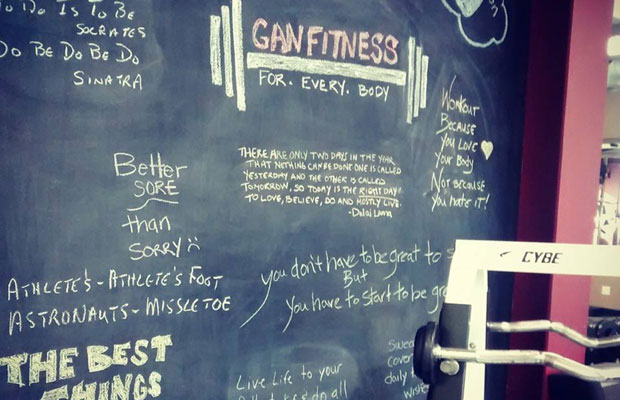 To Do Is To Be
SOCRATES
Do Be Do Be Do
SINATRA
GANFITNESS
FOR. EVERY. BODY
WORKOUT
BECAUSE
YOU LOVE
YOUR BODY
NOT BECAUSE
YOU HATE IT!
THERE ARE ONLY TWO DAYS IN THE YEAR
THAT NOTHING CAN BE DONE ONE IS CALLED
YESTERDAY AND THE OTHER IS CALLED
TOMORROW, SO TODAY IS THE RIGHT DAY
TO LOVE, BELIEVE, DO AND MOSTLY LIVE.
-Dalai Lama
Better
SORE
than
SORRY
ATHLETE'S - ATHLETE'S FOOT
ASTRONAUTS - MISSLETOE
you don't have to be great to s
But
you have to start to be gre
CYBE
THE BEST
THINGS
Live Life to your
do all
Swea
cover
daily
wishe